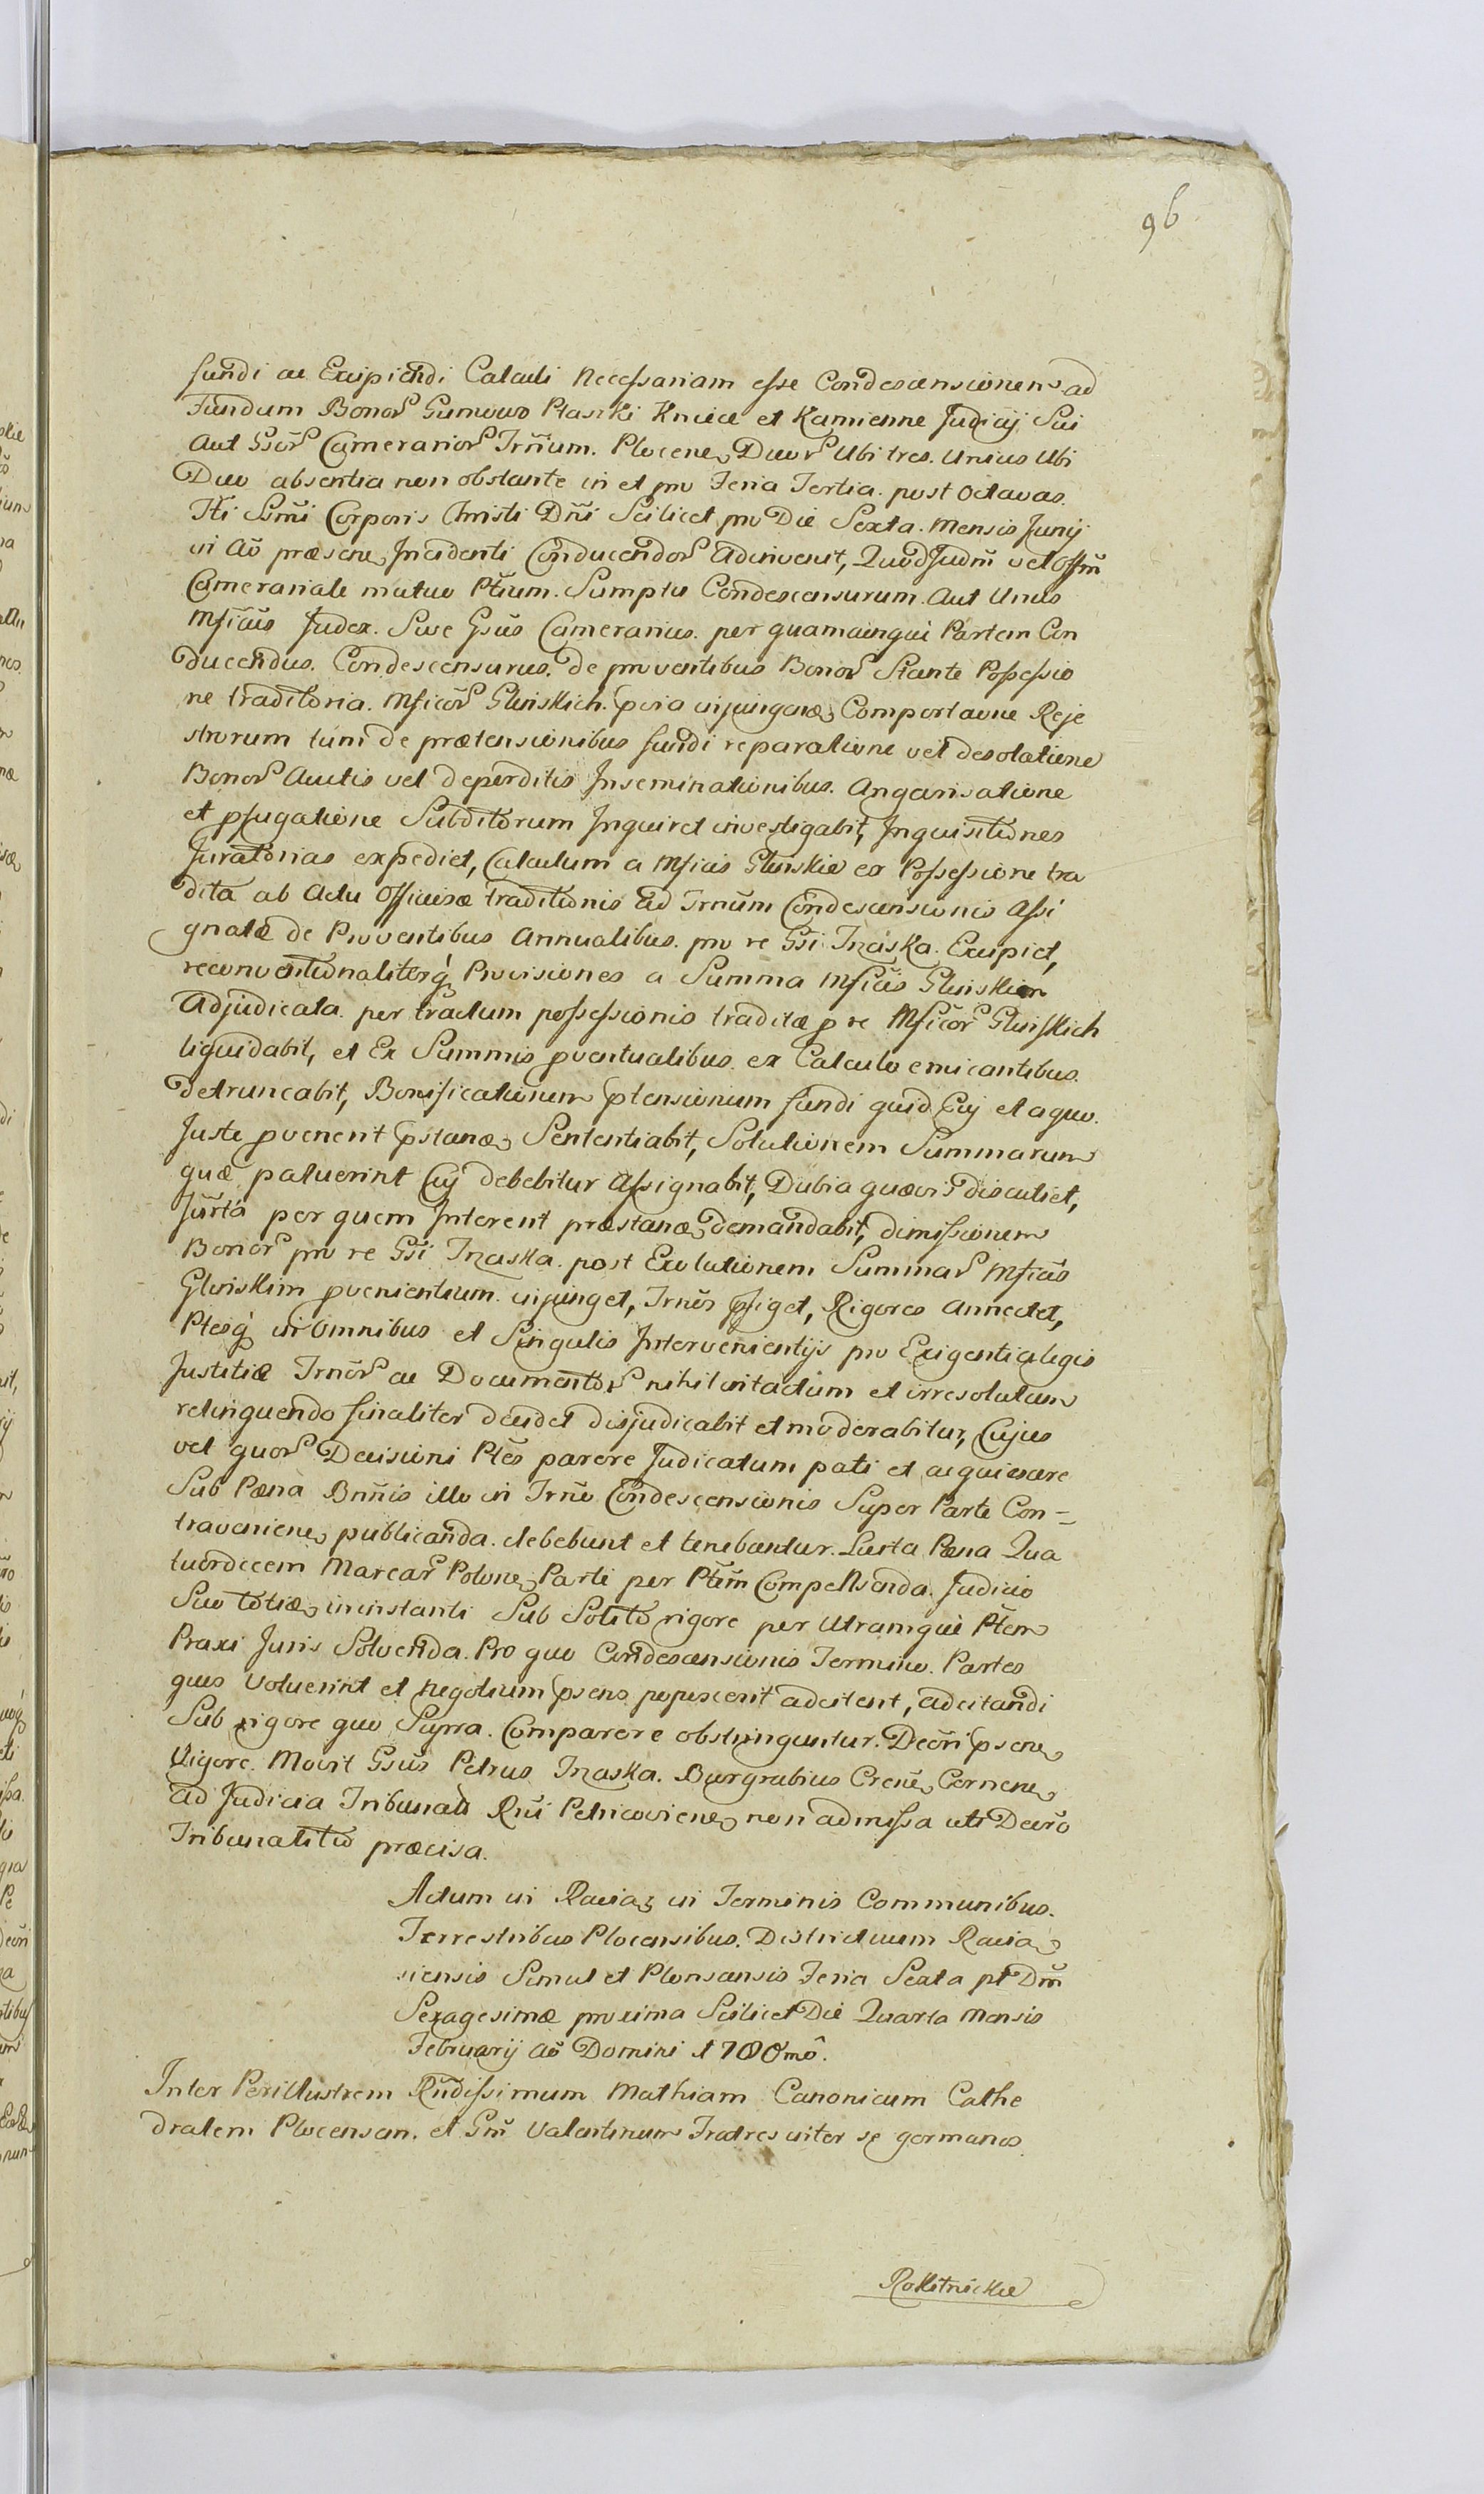 96
fundi ac Excipiendi Calculi Necessariam esse Condescensionem ad
Fundum Bonor Gumowo Ptaszki Kniece et Kamienne Judicij Sui
Aut Gsor Camerarior Trñium. Plocenẽ Duor Ubi tres. Unius Ubi
Duo absentia non obstante in et pro Feria Tertia. post Octavas
Fti Ssmi Corporis Christi Dñi Scilicet pro Die Sexta. Mensis Junij
in Aõ præsenẽ Incidenti Conducendor Adinvenit, Quod Judm vel Offm
Camerariale mutuo Ptium. Sumptu Condescensurum. Aut Unus
Mficus Judex. Sive Gsus Camerarius. per quamcunque Partem Con
ducendus. Condescensurus. de proventibus Bonor Stante Possessio
ne traditoria. Mficor Glinskich. pvia injungenẽ Comportaõne Reje
strorum tum de prætensionibus fundi reparatione vel desolatione
Bonor Auctis vel deperditis Inseminationibus. Angarisatione
et pfugatione Subditorum Inquiret investigabit, Inquisitiones
Juratorias expediet, Calculum a Mficis Glinskie ex Possessione tra
dita ab Actu Officiosæ traditionis ad Trnum Condescensionis Assi
gnatæ de Proventibus Annualibus. pro re Gsi Tnaska. Excipiet,
reconventionaliterq Provisiones a Summa Mficis Glinskim
Adjudicata. per tractum possessionis traditæ p re Mficor Glinskich
liquidabit, et Ex Summis pventualibus. ex Calculo emicantibus.
detruncabit, Bonificationem ptensionum fundi quid Cuj et a quo.
Juste pvenerit pstanẽ Sententiabit, Solutionem Summarum
quæ patuerint Cuj debebitur Assignabit, Dubia quævis discutiet,
Jurta per quem Intererit præstanẽ demandabit, dimissionem
Bonor pro re Gsi Tnaska. post Exolutionem Summar Mficis
Glinskim pvenientium. injunget, Trnos pfiget, Rigores Annectet,
Ptesq in Omnibus et Singulis Intervenientijs pro Exigentia legis
Justitiæ Trnor ac Documentor nihil intactum et irresolutum
relinquendo finaliter decidet disjudicabit et moderabitur, Cujus
vel quor Decisioni Ptes parere Judicatum pati et acquiescere
Sub Pæna Bnñis illo in Trno Condescensionis Super Parte Con=
travenienẽ publicanda. debebunt et tenebuntur. Lucta Pæna Qua
tuordecem Marcar Polonẽ Parti per Ptem Compensanda. Judicio
Suo totiæ in instanti Sub Solito rigore per Utramque Ptem
Praxi Juris Solvenda. Pro quo Condescensionis Termino. Partes
quos Voluerint et Negotium psens poposcerit adcitent, adcitandi
Sub rigore quo Supra. Comparere obstringuntur. Decri psenẽ
Vigore. Movit Gsus Petrus Tnaska. Burgrabius Crenẽ Cernenẽ
ad Judicia Tribunali Rni Petricoviene non admissa uti Decro
Tribunalitio præcisa.
Actum in Raciąz in Terminis Communibus.
Terrestribus Plocensibus. Districtuum Racią
siensis Simul et Plonscensis Feria Sexta pt Dnm
Sexagesimæ proxima Scilicet Die Quarta Mensis
Februarij Aõ Domini 1780mo.
Inter Perillustrem Rndissimum Mathiam Canonicum Cathe
dralem Plocensem. et Gm Valentinum Fratres inter se germanos.
Rokitnickie